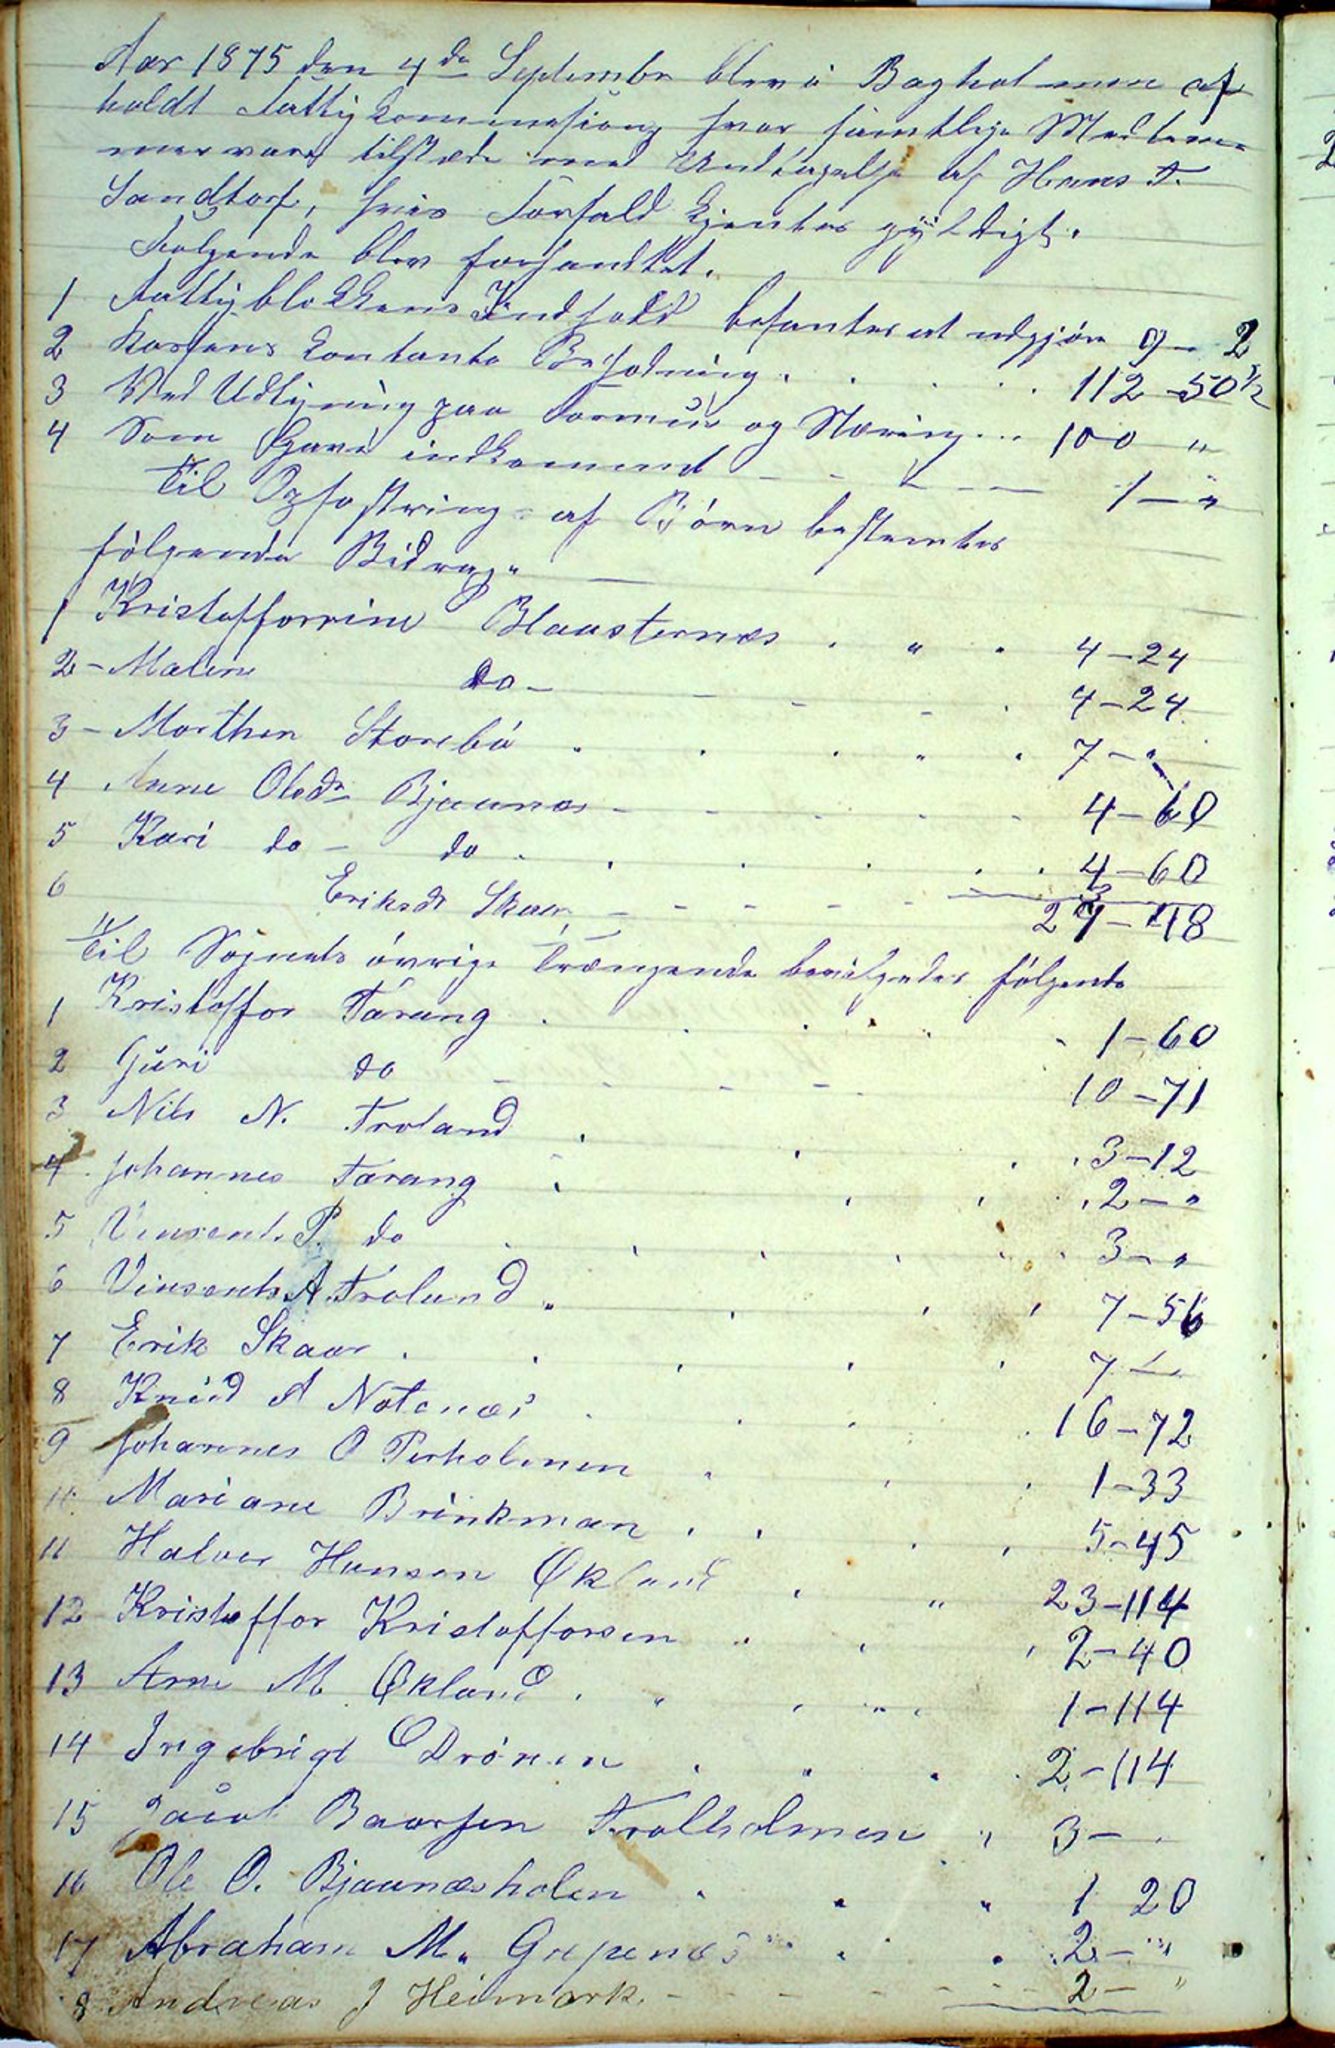 Aar 1875 den 4de Septembr blev i Bagholmen af
holdt Fattigkommission, hvor samtlige Medlem
mer vare tilstede med Undtagelse af Hans T.
Sandtorf, hvis Forfald kjentes gyldigt.
Følgende blev forhandlet.
1 Fattigblokkens Indhold befantes at udgjøre 9 - 2
2 Kassens kontante Beholdning . . . 112 - 50 1/2
3 Ved Udligning paa Formue og Næring . . . 100 "
4 Som Gave indkommend - - - 1 - "
Til Opfostring af Børn bestemtes
følgende Bidrag.
1 Kristofforine Blaasternæs . " . 4 - 24
2 - Malene do - - - - . 4 - 24
3 - Morthen Storebø . . . " . 7 - "
4 Anne Olsdr Bjaanæs - - - - 4 - 60
5 Kari do - do . . . . . 4 - 60
6 Eriksdr Skaar - - - - - 3
27 - 48
Til Sognets øvrige Trængende bevilgedes følgende
1 Kristoffor Færang . . . . " . 1 - 60
2 Guri do - - - - 10 - 71
3 Nils N. Troland . . . . 3 - 12
4 Johannes Færang . . . . 2 - "
5 Vinsents P. do . . . . . 3 - "
6 Vinsents A. Troland " . . . 7 - 56
7 Erik Skaar . . . . . 7 -
8 Knud A Notenæs . . . . 16 - 72
9 Johannes O Perholmen . . . 1 - 33
10 Mariane Brinkman . . . . 5 - 45
11 Halver Hansen Økland . " 23 - 114
12 Kristoffor Kristofforsen . . . 2 - 40
13 Arne M Økland . " . " . 1 - 114
14 Ingebrigt Drönen . " . . 2 - 114
15 Jacob Baarsen Trolholmen " . 3 -
16 Ole O. Bjaanæsholen . . " 1 20
17 Abraham M. Grepenæs " . . . 2 - "
18 Andreas J Heimark. - - - - - - 2 - "